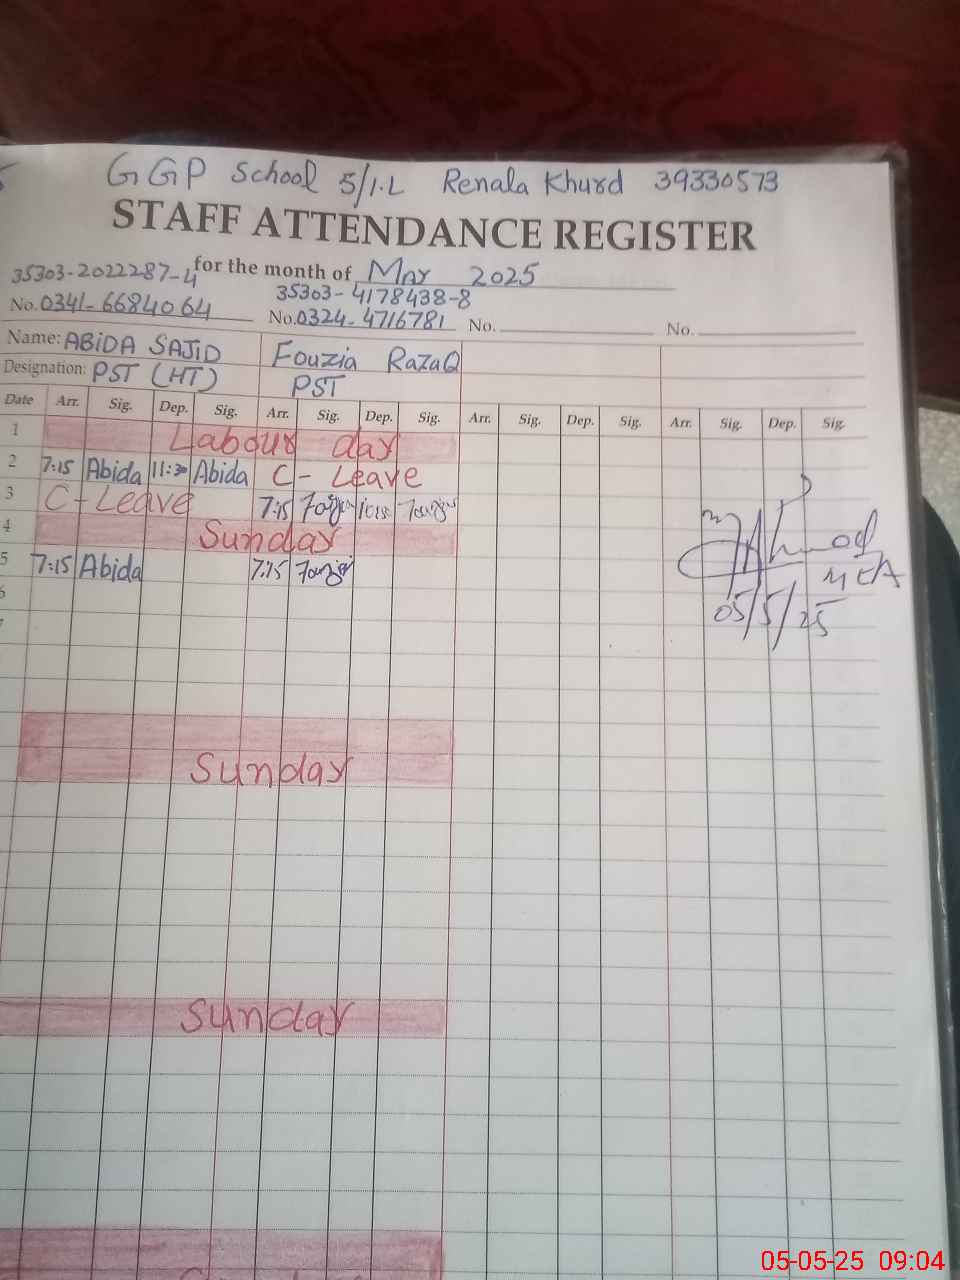 GGP School 5/1.L Renala Khurd 39330573
STAFF ATTENDANCE REGISTER
35303-2022287-4 for the month of May 2025
35303-4178438-8
No. 0341-6684064 No. 0324-4716781 No. No.
Name: ABIDA SAJID Fouzia RazaQ
Designation: PST (HT) PST
Date Arr. Sig. Dep. Sig. Arr. Sig. Dep. Sig. Arr. Sig. Dep. Sig. Arr. Sig. Dep. Sig.
1 Labour day
2 7:15 Abida 11:30 Abida C-Leave
3 C-Leave 7:15
4 Sunday
5 7:15 Abida 7:15
6
7
MEA
05/5/25
Sunday
Sunday
05-05-25 09:04